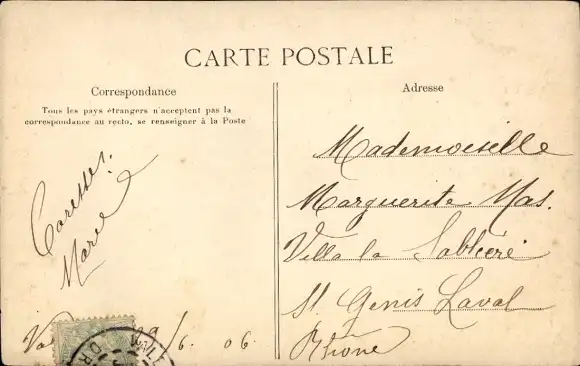 CARTE POSTALE
Correspondance
Tous les pays étrangers n'acceptent pas la
correspondance au recto, se renseigner à la Poste
Caresses.
Marie
9/6 06
Adresse
Mademoiselle
Marguerite Mas.
Villa la Sablière
St Genis Laval
Rhône